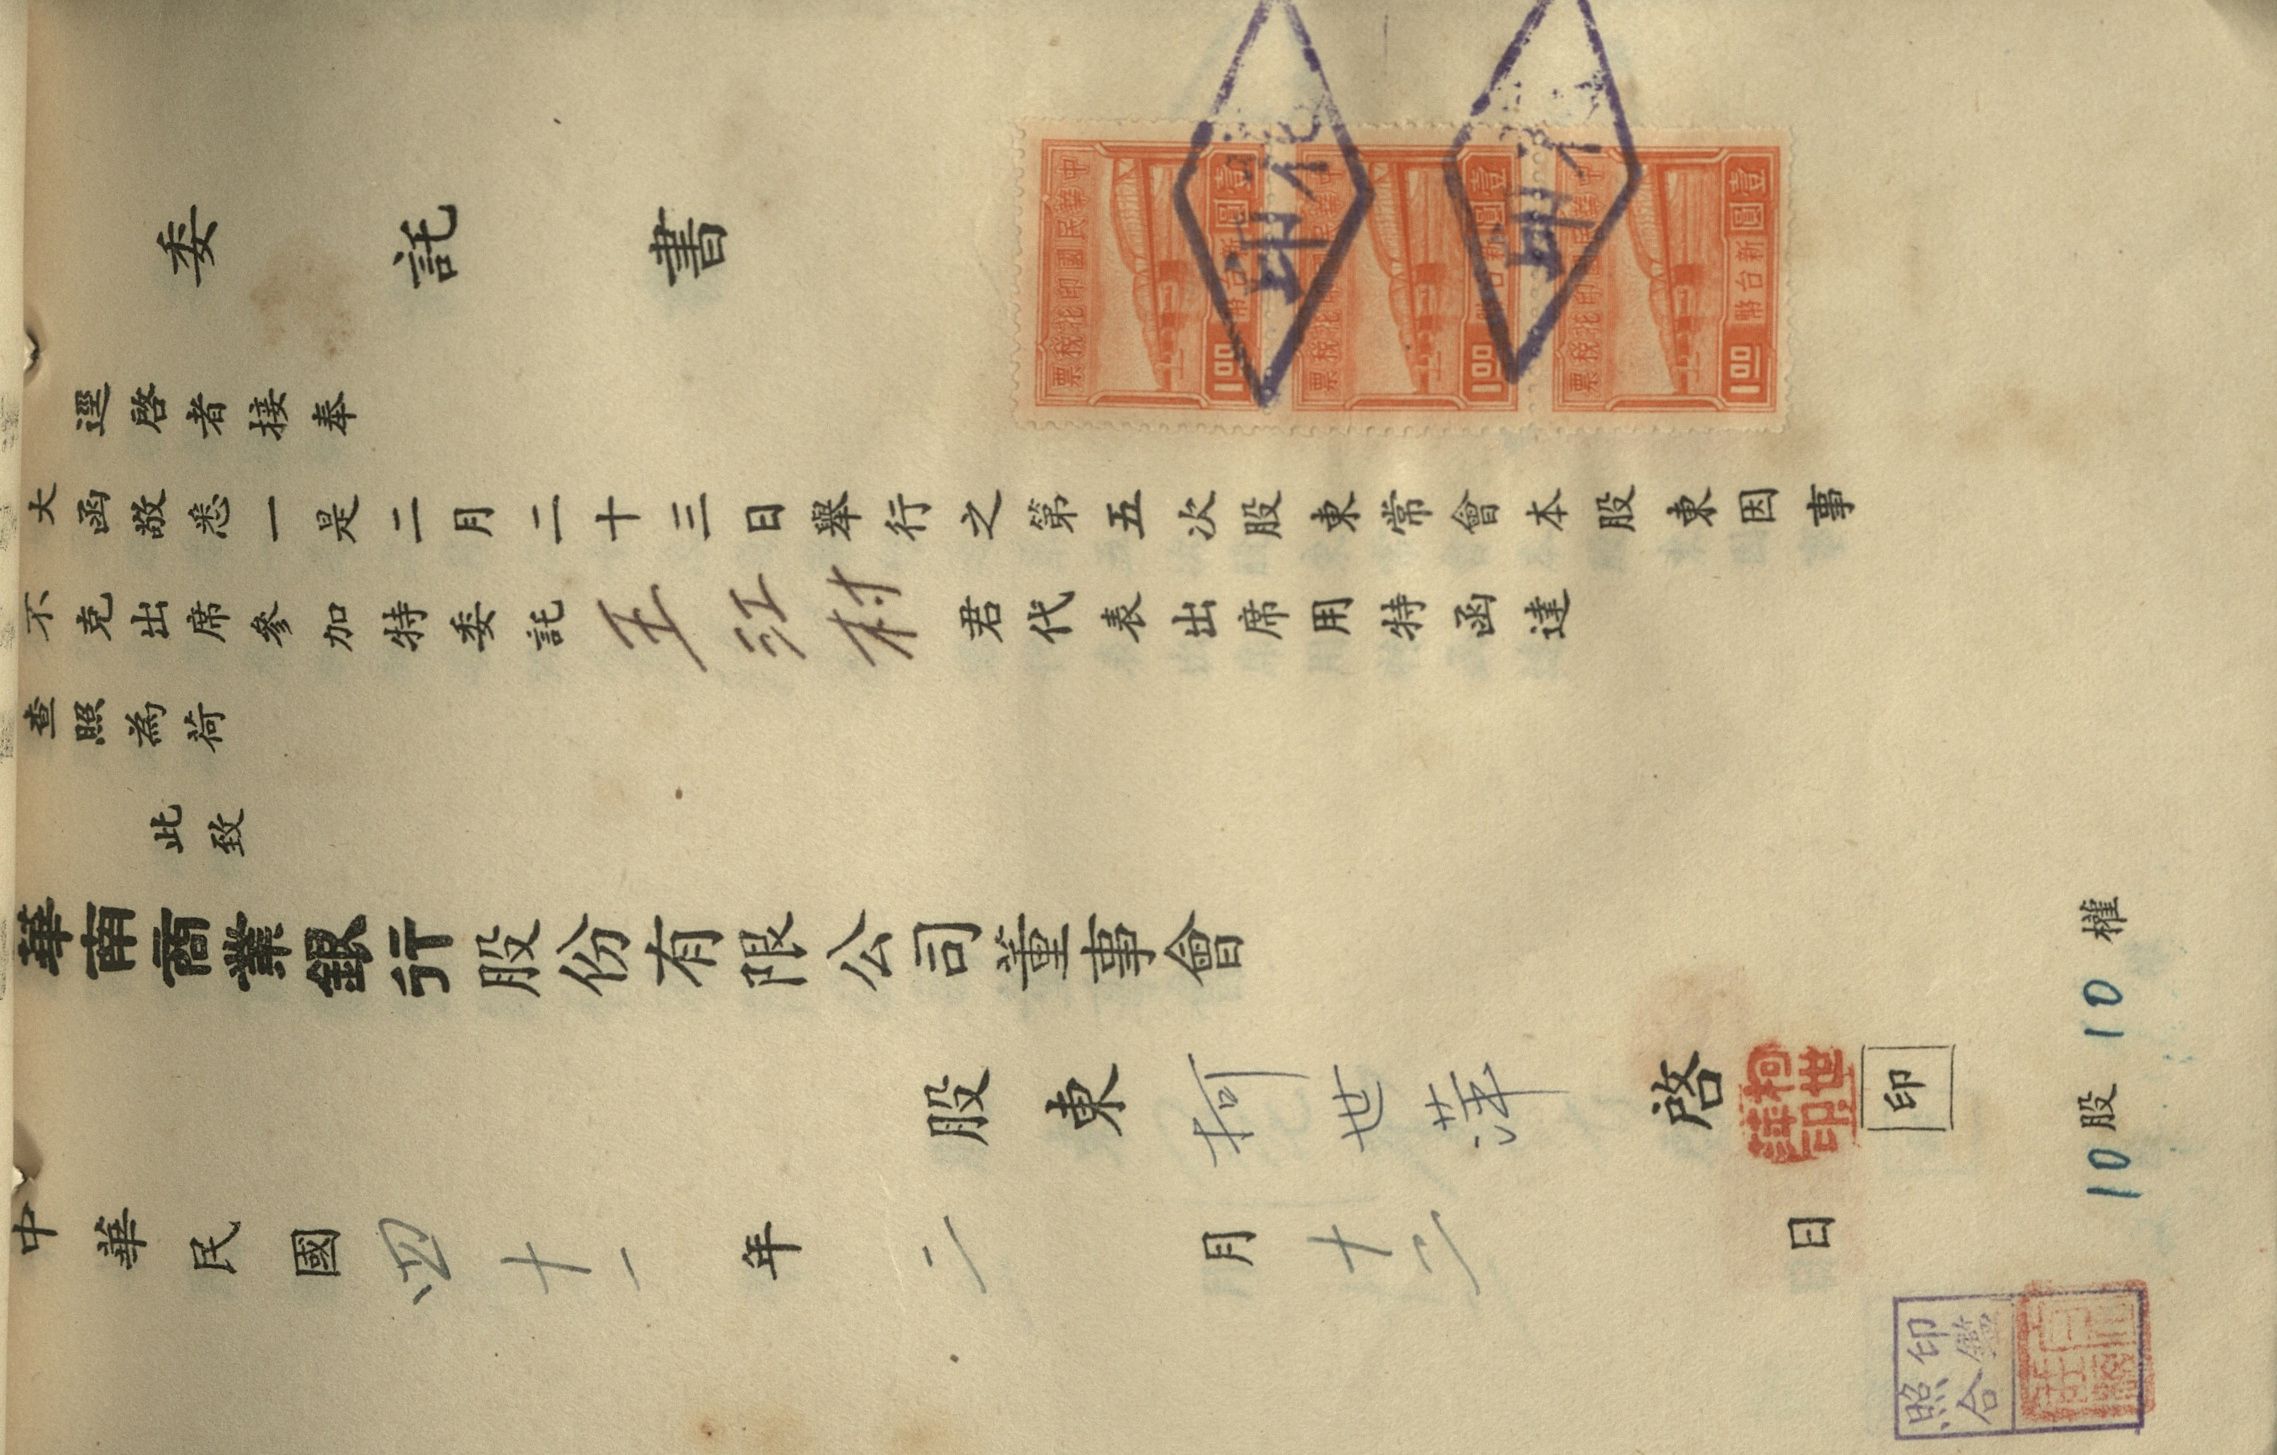 委託書
逕啓者接奉
大函敬悉一是二月二十三日舉行之第五次股東常會本股東因事
不克出席參加特委託王江村君代表出席用特函達
查照為荷
此致
華南商業銀行股份有限公司董事會
股東 柯世萍 啓 印
柯世萍印
中華民國四十一年二月十二日
10股 10權
印鑑
照合
中華民國印花稅票
壹圓
新台幣
1.00
中華民國印花稅票
壹圓
新台幣
1.00
中華民國印花稅票
壹圓
新台幣
1.00
印花
印花